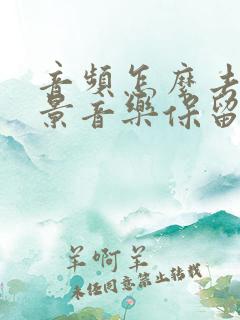 音頻怎麼去
景音樂保留
羊啊羊
未經同意禁止轉載